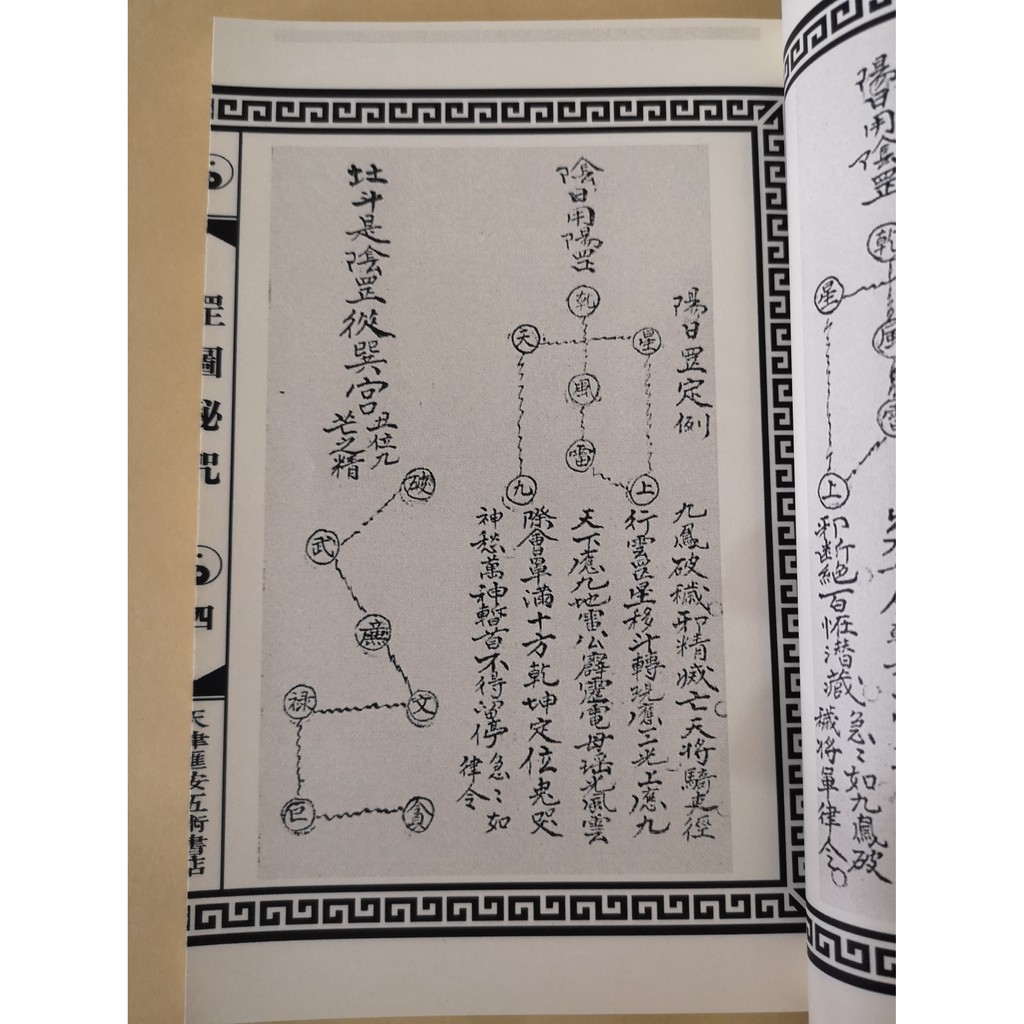 陽日用陰罡
乾
星
風
雷
上
邪斷絕百怪潛藏急〻如九鳳破
穢將軍律令
陽日罡定例
九鳳破穢邪精滅亡天將騎吏徑
行雲罡星移斗轉現應三光上應九
天下應九地雷公霹靂電母瑤光風雲
際會罩滿十方乾坤定位鬼哭
神愁萬神暫首不得留停急〻如
律令
陰日用陽罡
乹
天
星
風
雷
九
上
斗是陰罡從巽宮
丑位九
芒之精
破
武
廉
文
禄
巨
貪
罡圖秘咒
四
天津匯按五術書店